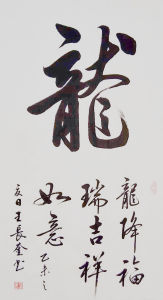 龍
龍降福
瑞吉祥
如意乙未之
亥日王長奎書